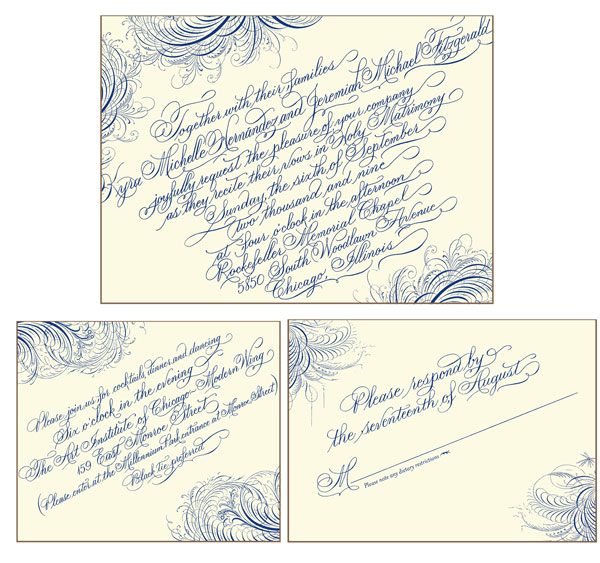 Together with their families
Kyra Michelle Hernández and Jeremiah Michael Fitzgerald
joyfully request the pleasure of your company
as they recite their vows in Holy Matrimony
Sunday, the sixth of September
two thousand and nine
at four o'clock in the afternoon
Rockefeller Memorial Chapel
5850 South Woodlawn Avenue
Chicago, Illinois
Please join us for cocktails, dinner and dancing
Six o'clock in the evening
The Art Institute of Chicago-Modern Wing
159 East Monroe Street
(Please enter at the Millennium Park entrance at Monroe Street)
Black tie preferred
Please respond by
the seventeenth of August
M
Please note any dietary restrictions